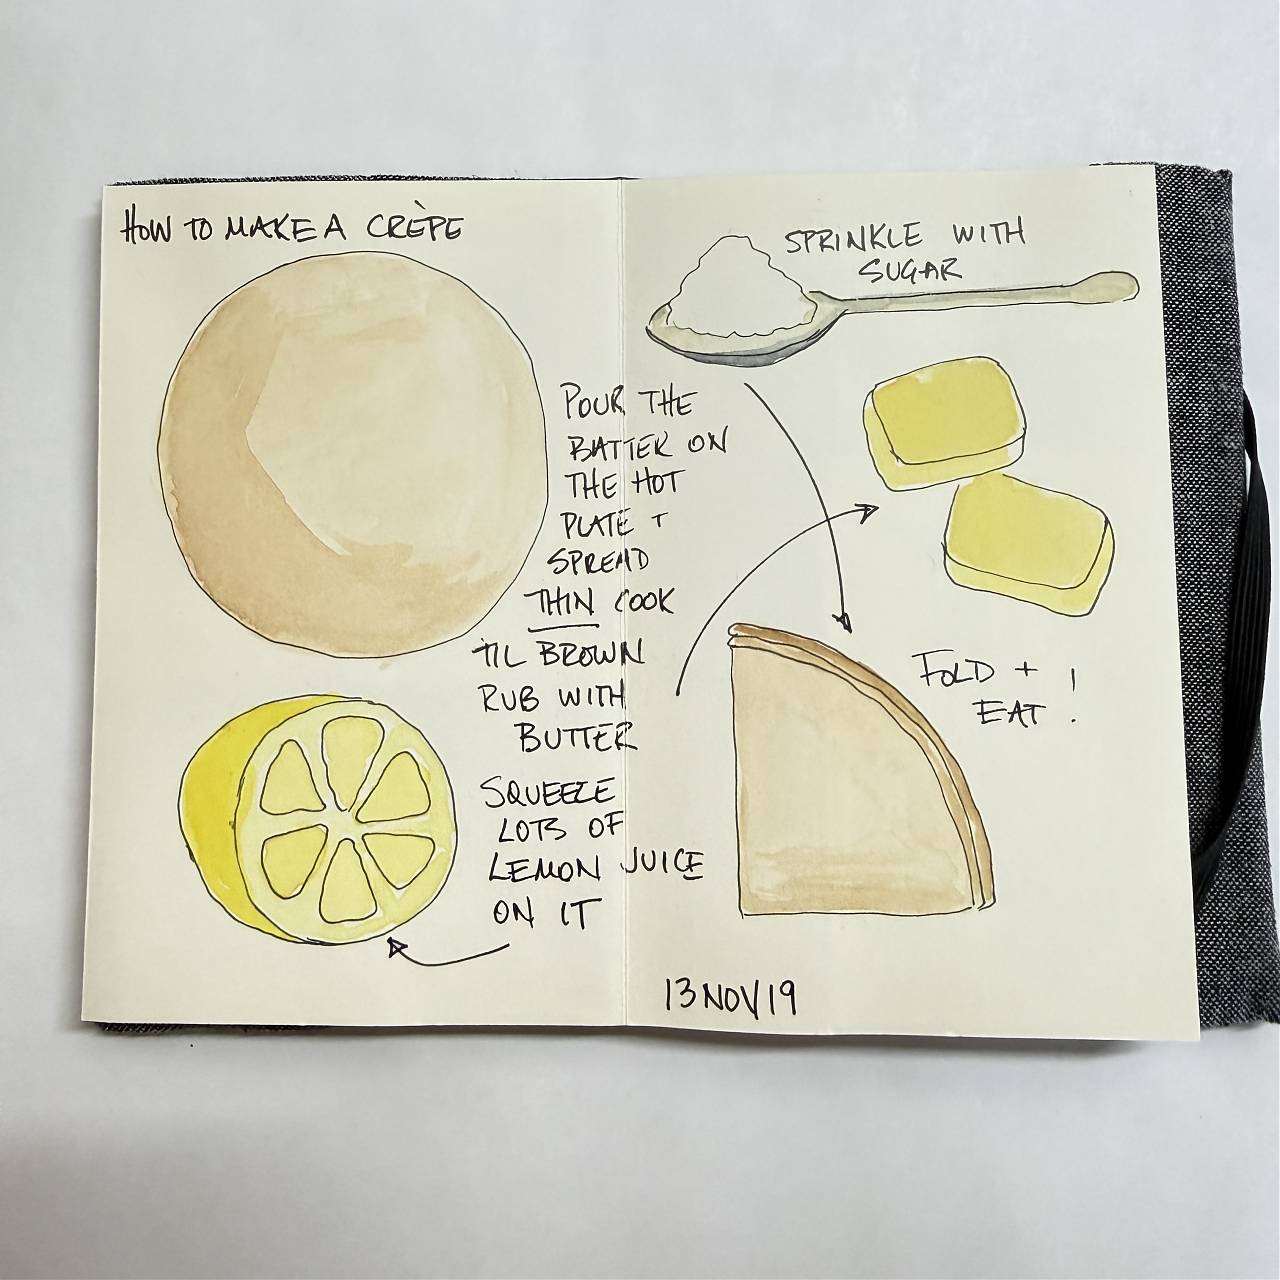 HOW TO MAKE A CRÈPE
POUR THE
BATTER ON
THE HOT
PLATE +
SPREAD
THIN COOK
'TIL BROWN
RUB WITH
BUTTER
SQUEEZE
LOTS OF
LEMON JUICE
ON IT
SPRINKLE WITH
SUGAR
FOLD +
EAT !
13 NOV 19